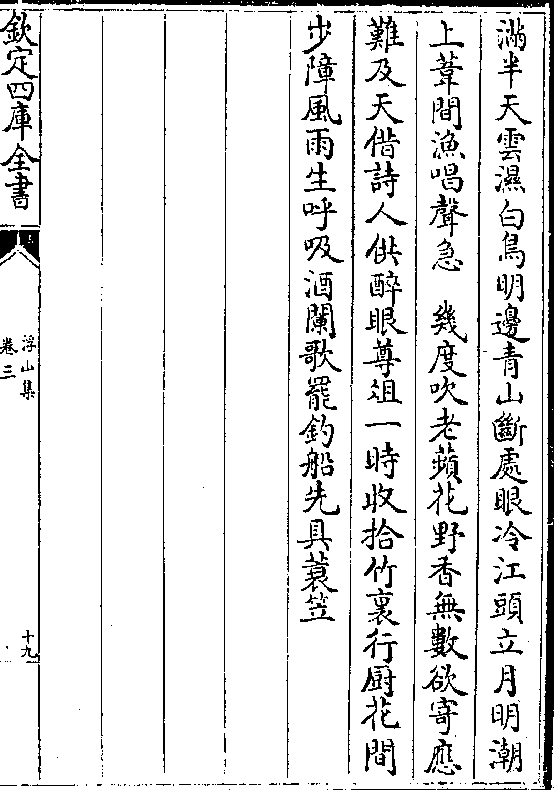 滿半天雲濕白鳥明邊青山斷處眼冷江頭立月明潮
上葦間漁唱聲急　幾度吹老蘋花野香無數欲寄應
難及天借詩人供醉眼尊俎一時收拾竹裏行厨花間
步障風雨生呼吸酒闌歌罷釣船先具蓑笠
欽定四庫全書
浮山集
卷三
十九